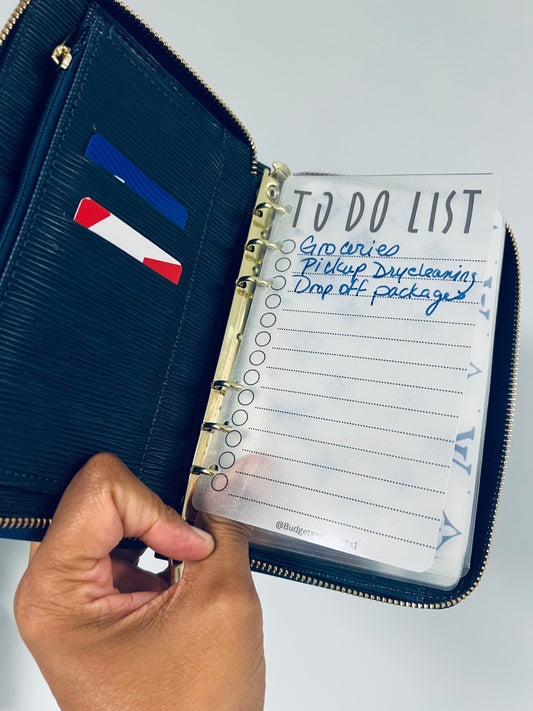 TO DO LIST
Groceries
Pickup Drycleaning
Drop off packages
W
A